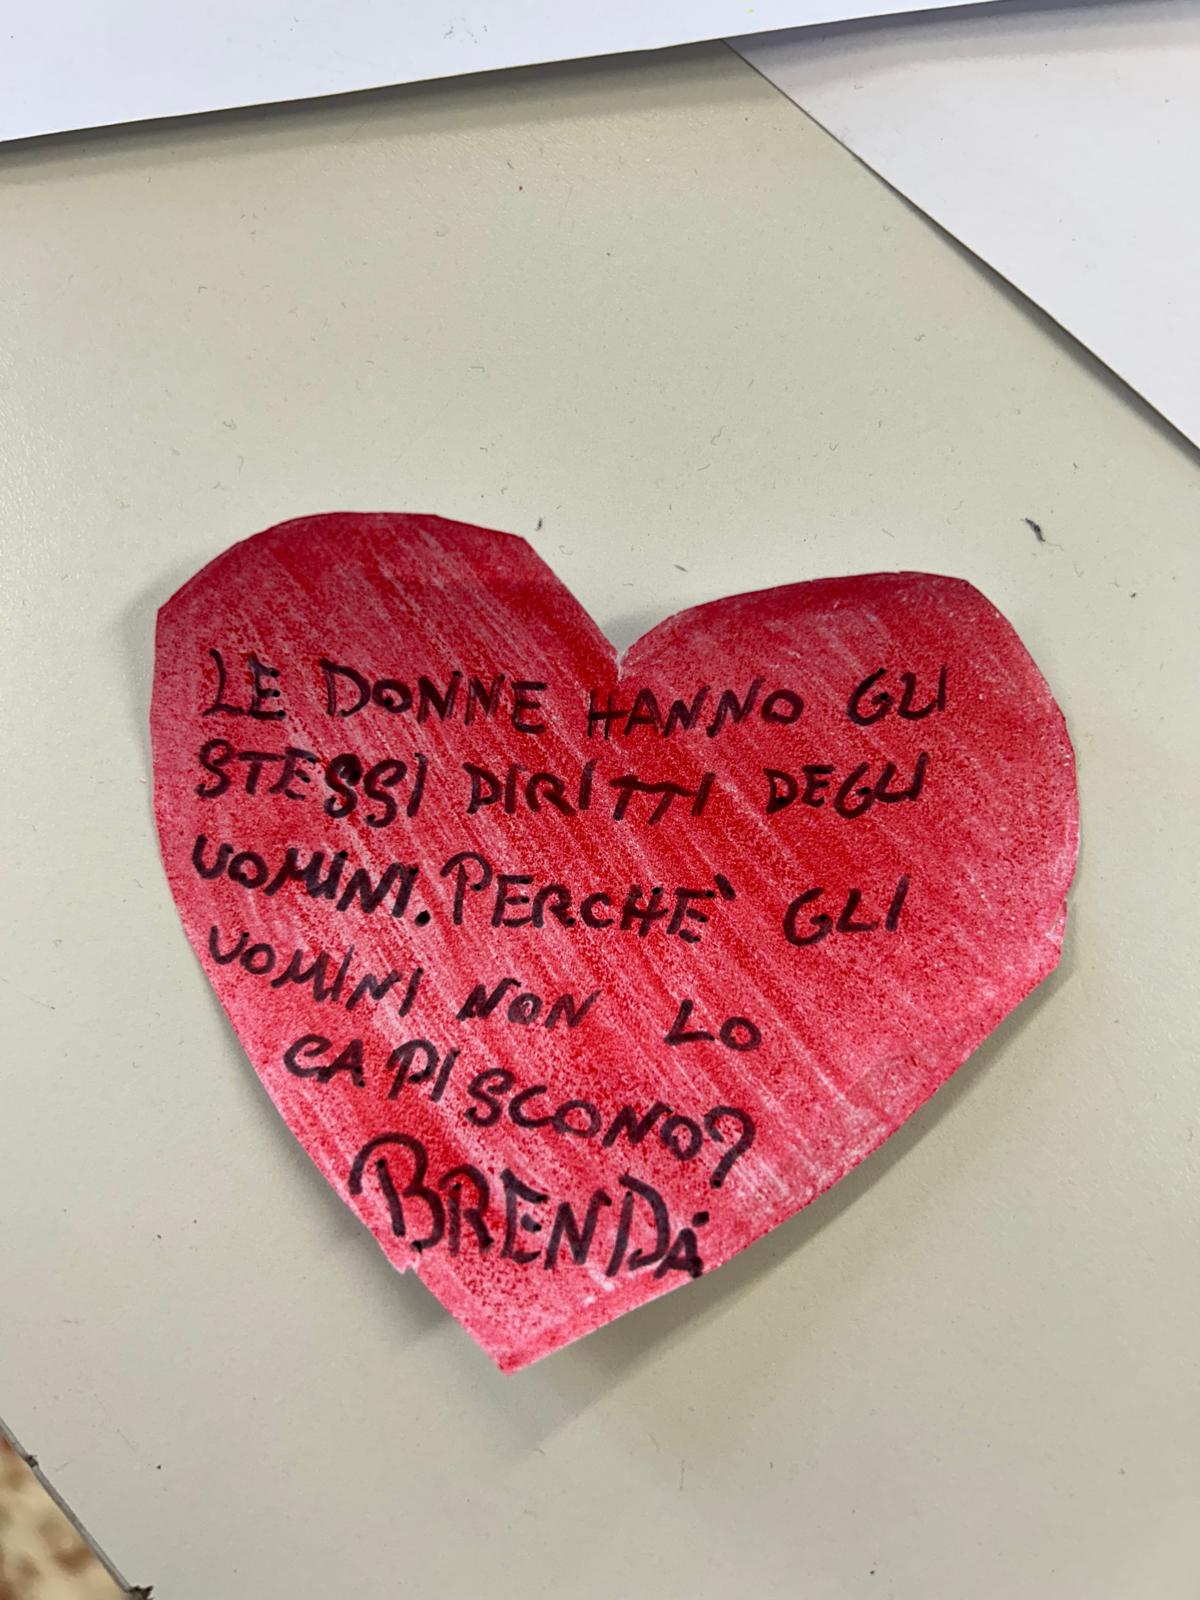 LE DONNE HANNO GLI
STESSI DIRITTI DEGLI
UOMINI. PERCHE' GLI
UOMINI NON LO
CAPISCONO?
BRENDA